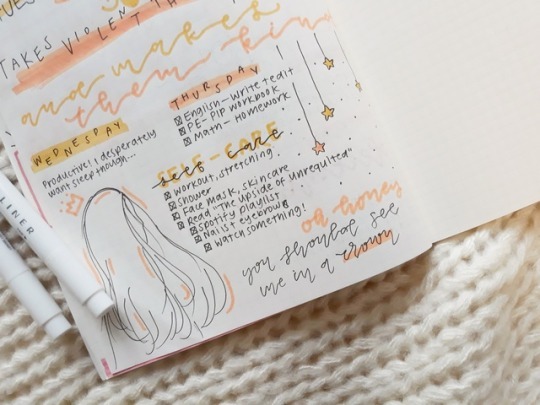 TAKES VIOLENT TH
and makes
them kin
WEDNESDAY
Productive! I desperately
want sleep though...
THURSDAY
English - write + edit
PE - PIP workbook
Math - Homework
SELF-CARE
self care
Workout, stretching
Shower
Face mask, skincare
Read "The upside of unrequited"
Spotify playlist
Nails + eyebrows
Watch something!
oh honey
you should see
me in a crown
LINER